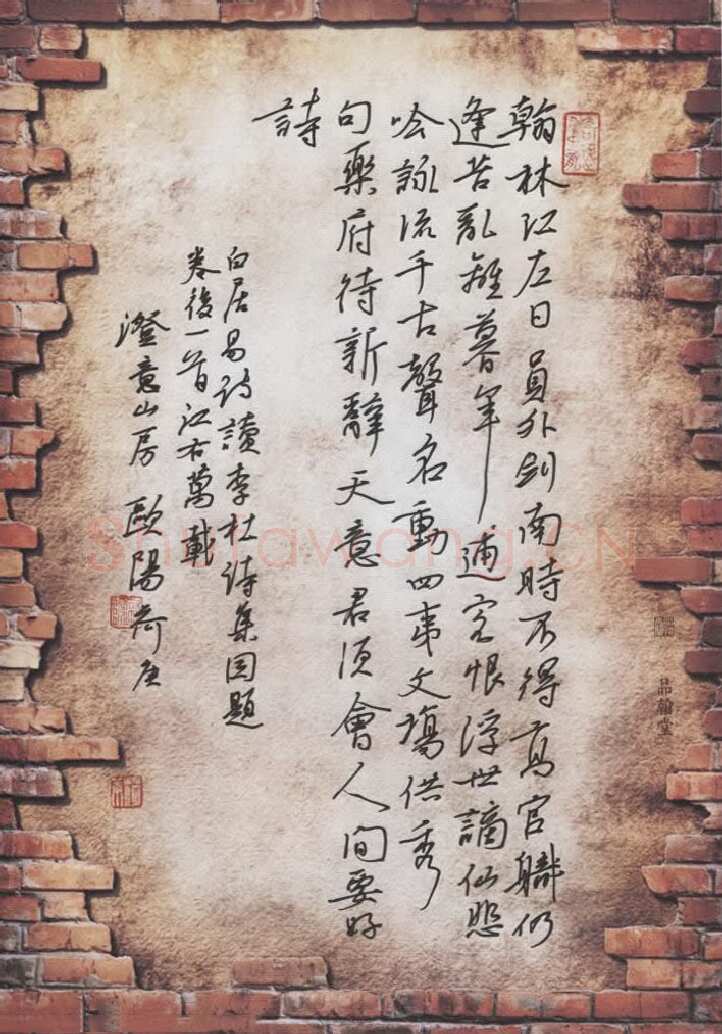 翰林江左日員外剑南時不得高官職仍
逢苦亂離暮年逋客恨浮世謫仙悲
吟詠流千古聲名動四夷文場供秀
句樂府待新辭天意君須會人间要好
詩
白居易诗讀李杜诗集因題
卷後一首江右萬載
澄意山房 歐陽荷庚
品翰堂
ShuFaWang.CN